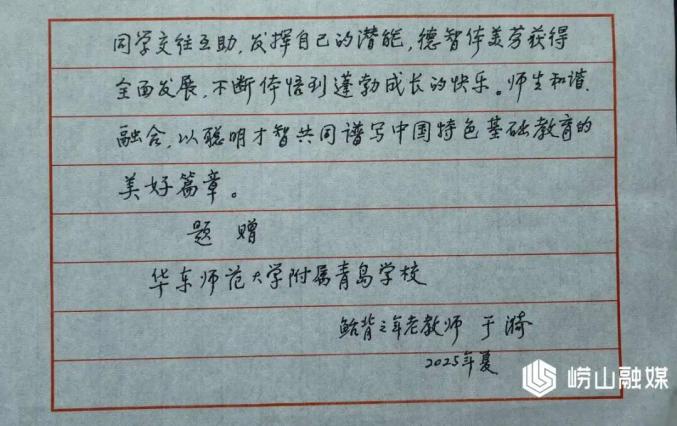 同学交往互助，发挥自己的潜能，德智体美劳获得
全面发展，不断体悟到蓬勃成长的快乐。师生和谐、
融合，以聪明才智共同谱写中国特色基础教育的
美好篇章。
题 赠
华东师范大学附属青岛学校
鲐背之年老教师 于漪
2025年夏
崂山融媒